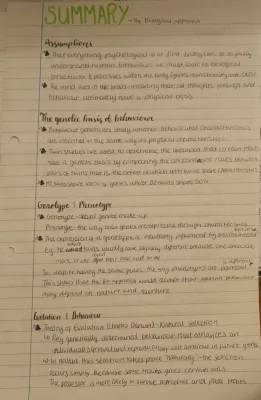 SUMMARY → The Biological Approach
Assumptions
→ That everything psychological is at first biological, so to fully
understand human behaviour, we must look to biological
structures & processes within the body (genes, neurochemistry and CNS)
→ The mind lives in the brain - meaning that all thoughts, feelings and
behaviour ultimately have a physical basis.
The genetic basis of behaviour
→ Behaviour geneticists study whether behavioural characteristics
are inherited in the same way as physical characteristics
→ Twin studies are used to determine the likelihood that certain traits
have a genetic basis by comparing the concordance rates between
pairs of twins, that is, the extent to which both twins share characteristic
→ MZ twins share 100% of genes, whilst DZ twins share 50%
Genotype & Phenotype
→ Genotype - actual genetic make-up
Phenotype - the way that genes are expressed through characteristics
→ The expression of a genotype is inevitably influenced by environmental
E.g. MZ twins usually look slightly different because one exercises
more, or one dyes hair and one
So, despite having the same genes, the way phenotypes are expressed is different.
This shows that the Bio approach would accept that human behaviour
may depend on nature and nurture.
Evolution & Behaviour
→ Theory of Evolution (Charles Darwin) - Natural selection
↳ Any genetically determined behaviour that enhances an
individual's survival and reproduction will continue in future genes.
↳ In nature this selection takes place 'naturally' - the selection
occurs simply because some traits give certain
The possessor is more likely to survive, reproduce and pass traits